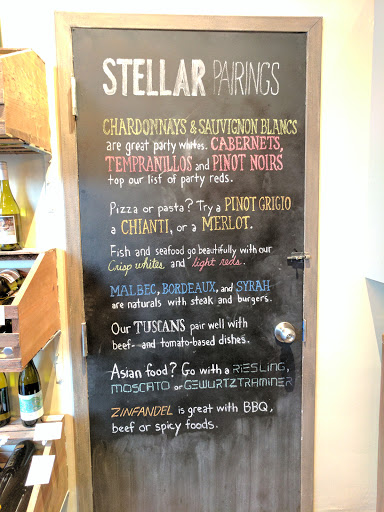 STELLAR PAIRINGS
CHARDONNAYS & SAUVIGNON BLANCS
are great party whites. CABERNETS,
TEMPRANILLOS and PINOT NOIRS
top our list of party reds.
Pizza or pasta? Try a PINOT GRIGIO
a CHIANTI, or a MERLOT.
Fish and seafood go beautifully with our
Crisp whites and light reds.
MALBEC, BORDEAUX, and SYRAH
are naturals with steak and burgers.
Our TUSCANS pair well with
beef- and tomato-based dishes.
Asian food? Go with a RIESLING,
MOSCATO or GEWURTZTRAMINER
ZINFANDEL is great with BBQ,
beef or spicy foods.